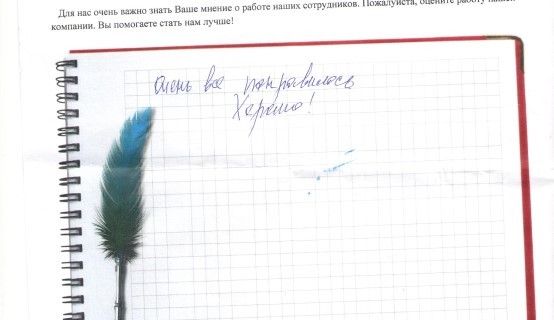 Для нас очень важно знать Ваше мнение о работе наших сотрудников. Пожалуйста, оцените работу нашей
компании. Вы помогаете стать нам лучше!
Очень все понравилось
Хорошо!